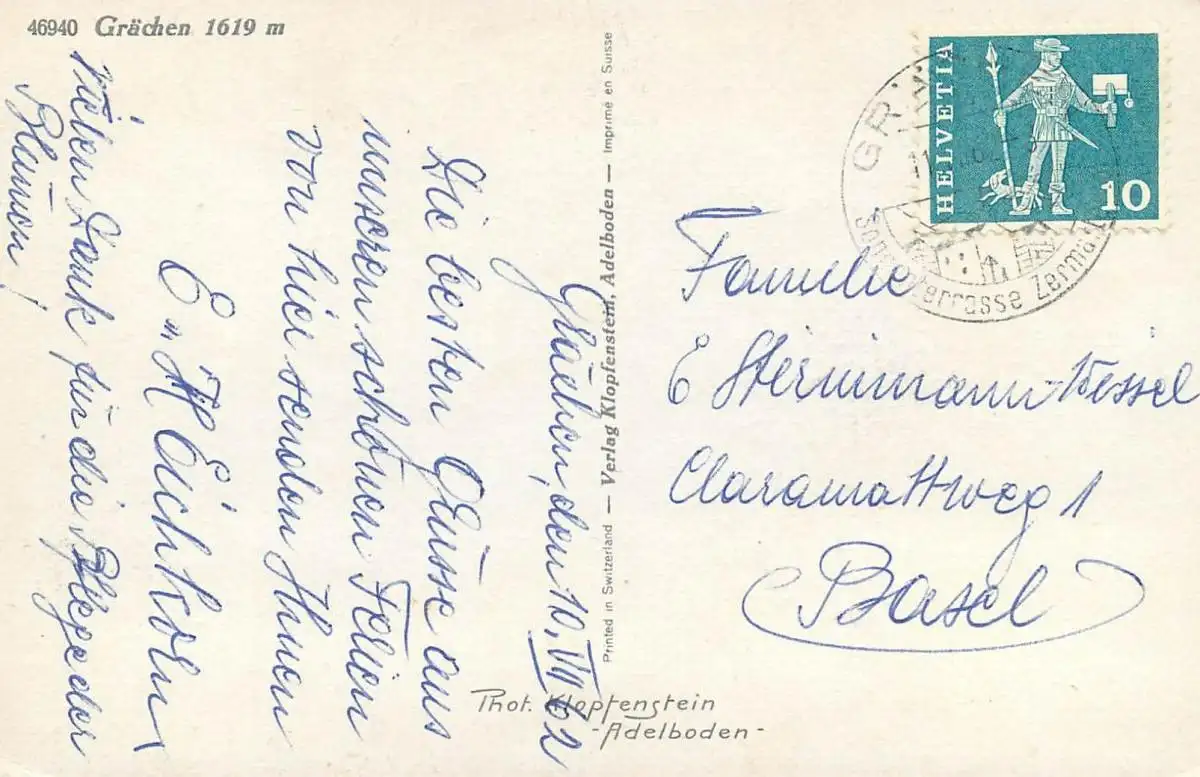 46940 Grächen 1619 m
Grächen, den 10. VII 62
Die besten Grüsse aus
unseren schönen Ferien
von hier senden Ihnen
E. u. H. Eichkorn
Vielen Dank für die Pflege der
Blumen!
Printed in Switzerland — Verlag Klopfenstein, Adelboden — Imprimé en Suisse
Phot. Klopfenstein
- Adelboden -
HELVETIA
10
Familie
E Sternimann-Kissel
Claramattweg 1
Basel